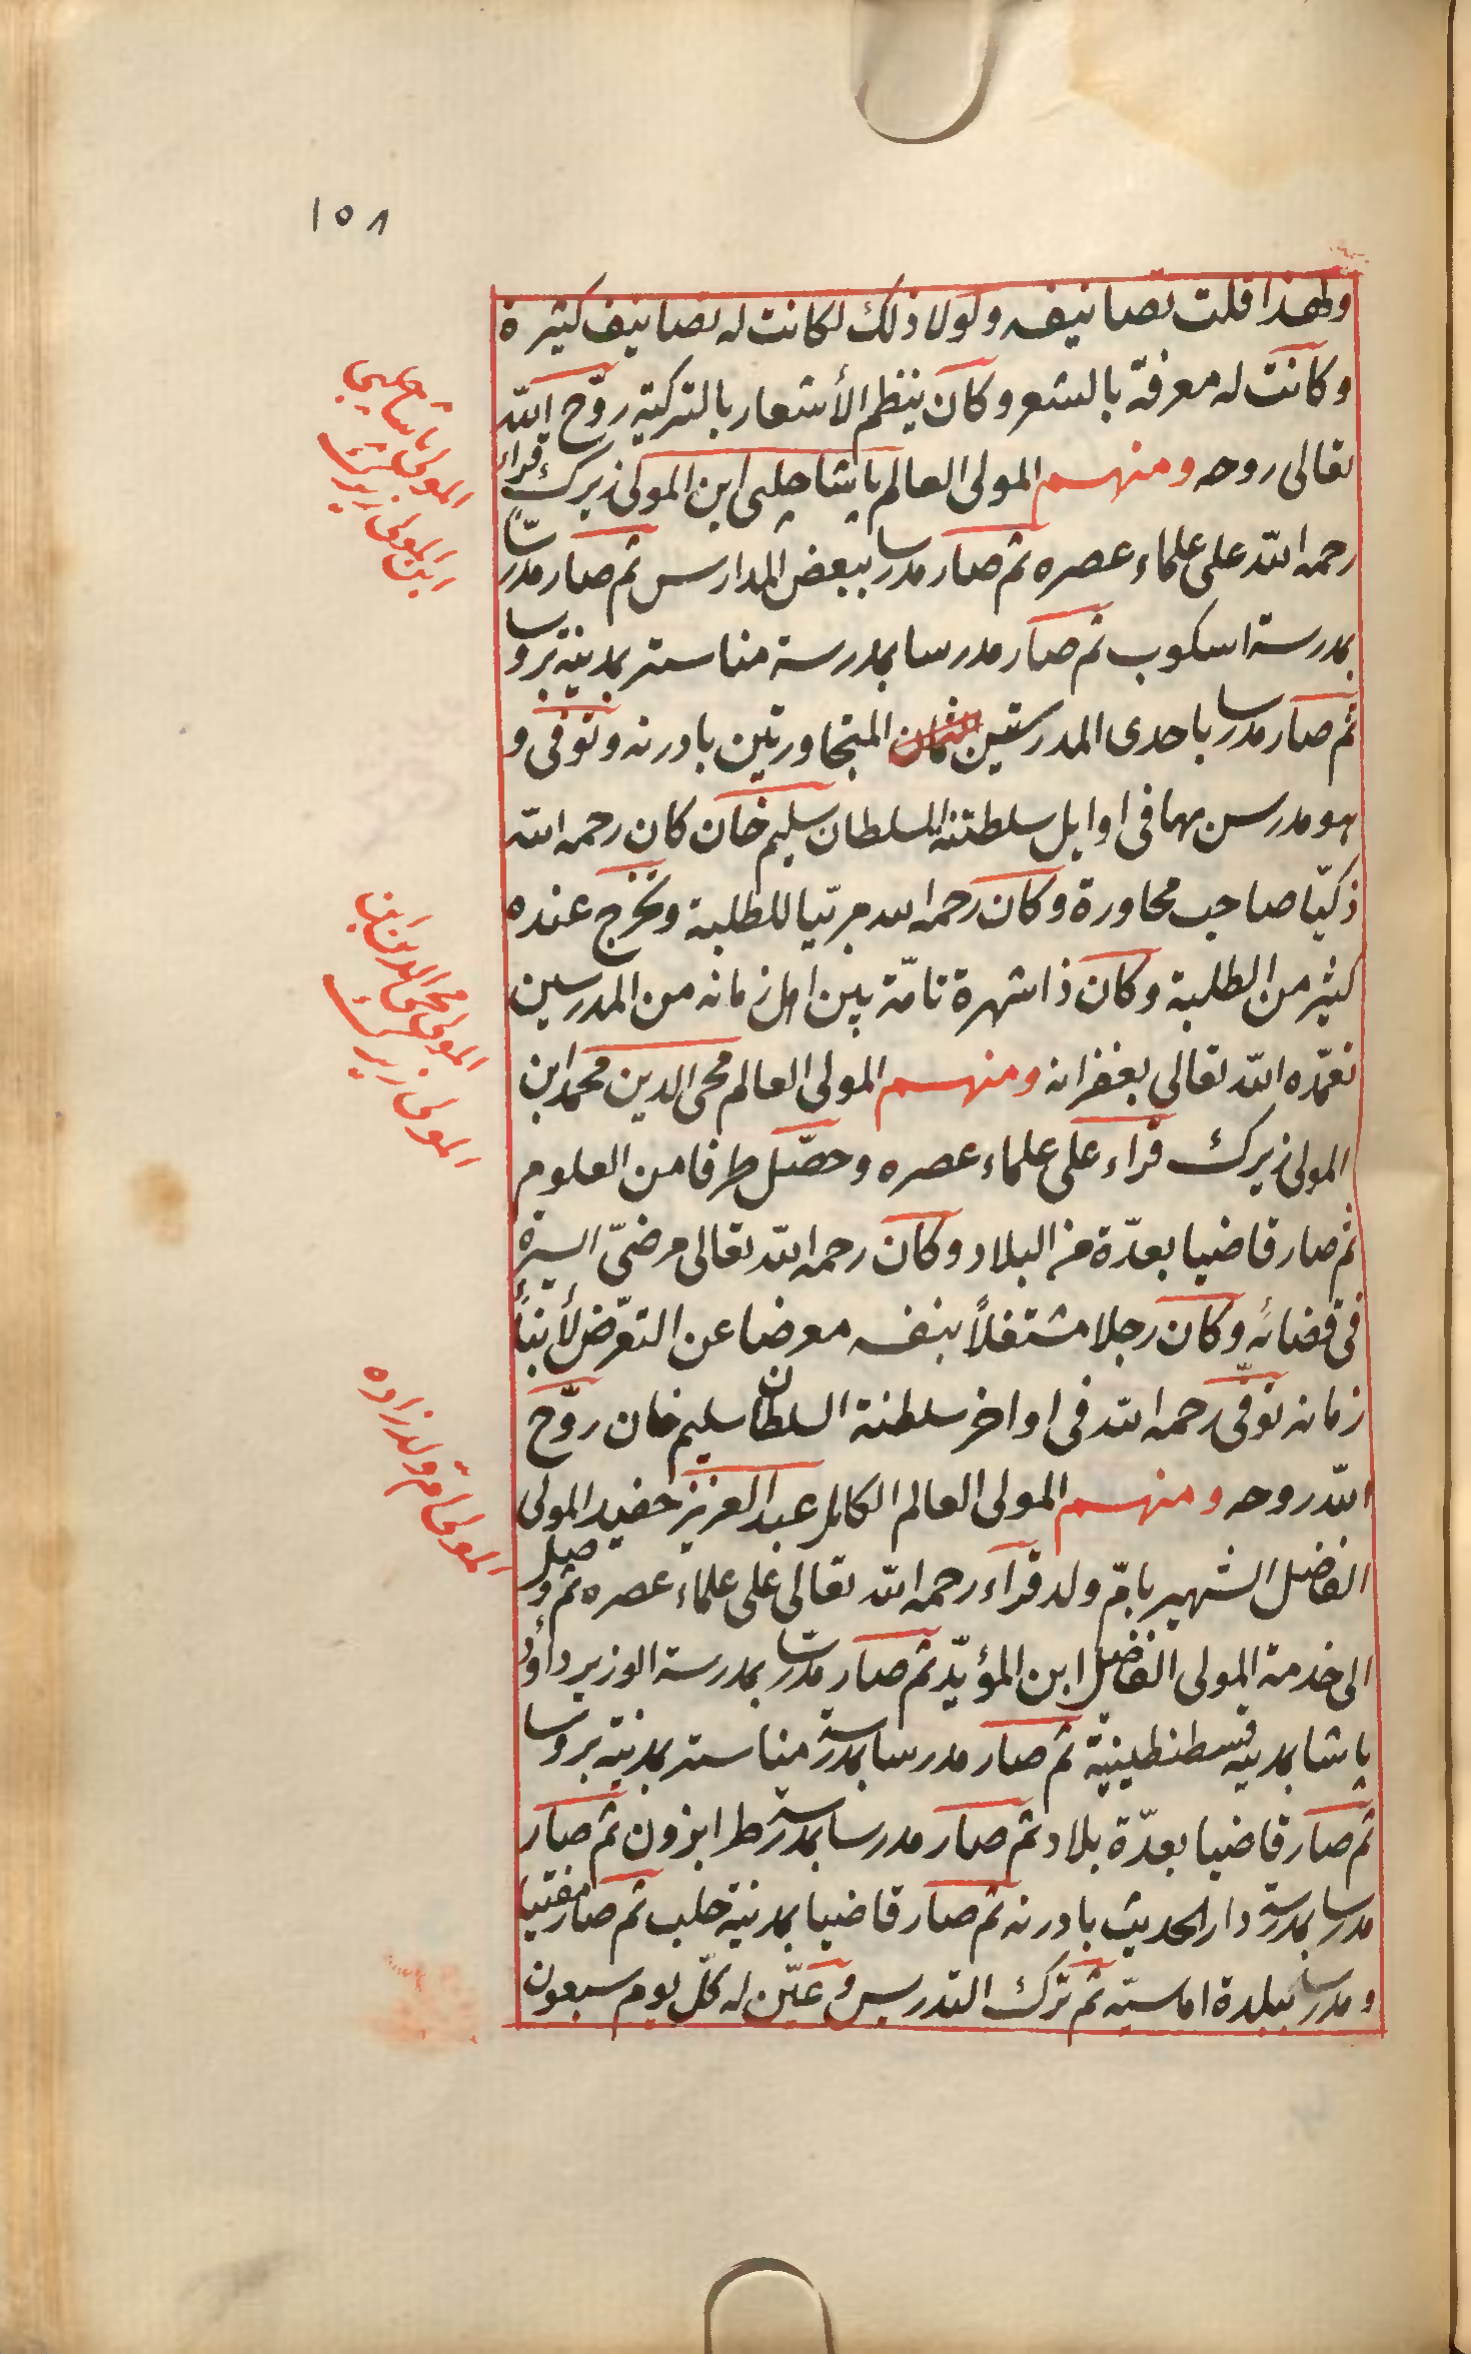 ١٥٨
ولهذا قلت تصانيفه ولولا ذلك لكانت له تصانيف كثيرة
وكانت له معرفة بالشعر وكان ينظم الأشعار بالتركية روّح الله
تعالى روحه ومنهم المولى العالم پاشا چلبى ابن المولى زيرك قراء
رحمه الله على علماء عصره ثم صار مدرسا ببعض المدارس ثم صار مدرسا
بمدرسة اسكوب ثم صار مدرسا بمدرسة مناستر بمدينة بروسا
ثم صار مدرسا باحدى المدرستين المتجاورتين بادرنه وتوفى و
هو مدرس بها فى اوايل سلطنة السلطان سليم خان كان رحمه الله
ذكيّا صاحب محاورة وكان رحمه الله مربّيا للطلبة وتخرج عنده
كثير من الطلبة وكان ذا شهرة تامّة بين اهل زمانه من المدرسين
تغمّده الله تعالى بغفرانه ومنهم المولى العالم محى الدين محمد ابن
المولى زيرك قراء على علماء عصره وحصّل طرفا من العلوم
ثم صار قاضيا بعدّة من البلاد وكان رحمه الله تعالى مرضىّ السيرة
فى قضائه وكان رجلا مشتغلاً بنفسه معرضا عن التعرّض لأبناء
زمانه توفّى رحمه الله فى اواخر سلطنة السلطان سليم خان روّح
الله روحه ومنهم المولى العالم الكامل عبد العزيز حفيد المولى
الفاضل الشهير بامّ ولد قراء رحمه الله تعالى على علماء عصره ثم وصل
الى خدمة المولى الفاضل ابن المؤيّد ثم صار مدرسا بمدرسة الوزير داؤد
پاشا بمدينة قسطنطينية ثم صار مدرسا بمدرسة مناستر بمدينة بروسا
ثم صار قاضيا بعدّة بلاد ثم صار مدرسا بمدرسة طرابزون ثم صار
مدرسا بمدرسة دار الحديث بادرنه ثم صار قاضيا بمدينة حلب ثم صار مفتيا
ومدرسا ببلدة اماسيّه ثم ترك التدريس وعيّن له كلّ يوم سبعون
المولى پاشا چلبى
ابن المولى زيرك
المولى محى الدين ابن
المولى زيرك
المولى ام ولد زاده